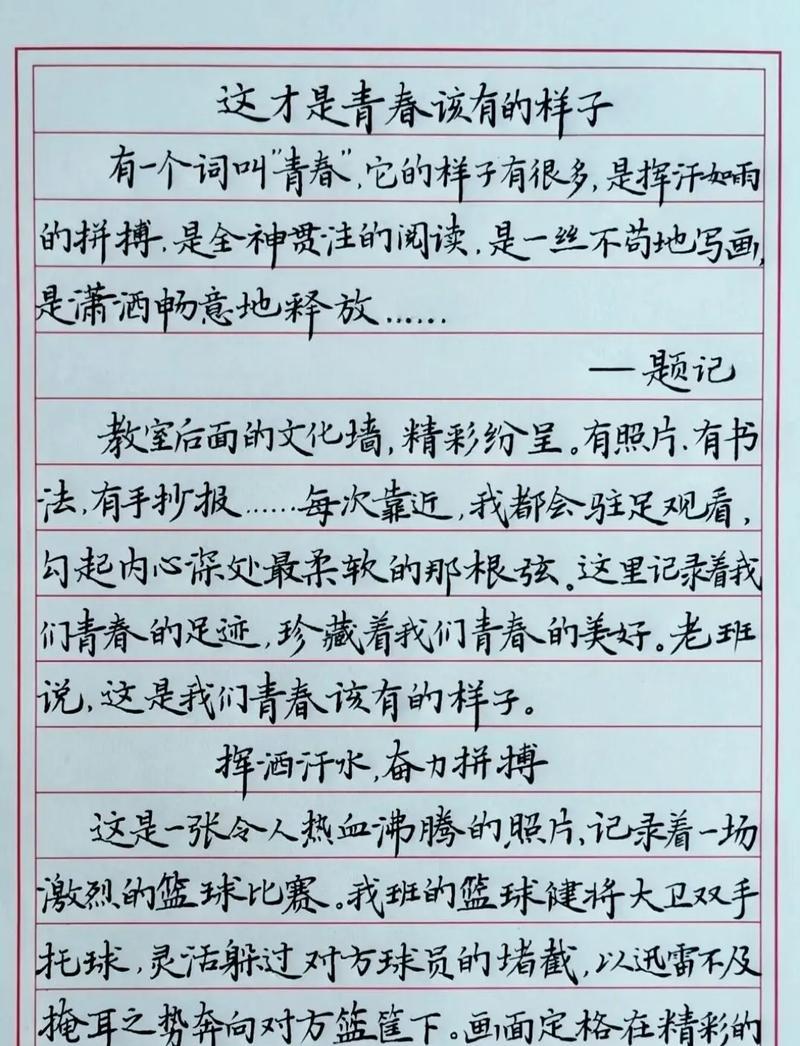 这才是青春该有的样子
有一个词叫"青春",它的样子有很多,是挥汗如雨
的拼搏,是全神贯注的阅读,是一丝不苟地写画,
是潇洒畅意地释放……
——题记
教室后面的文化墙,精彩纷呈。有照片、有书
法,有手抄报……每次靠近,我都会驻足观看,
勾起内心深处最柔软的那根弦。这里记录着我
们青春的足迹,珍藏着我们青春的美好。老班
说,这是我们青春该有的样子。
挥洒汗水,奋力拼搏
这是一张令人热血沸腾的照片,记录着一场
激烈的篮球比赛。我班的篮球健将大卫双手
托球,灵活躲过对方球员的堵截,以迅雷不及
掩耳之势奔向对方篮筐下。画面定格在精彩的